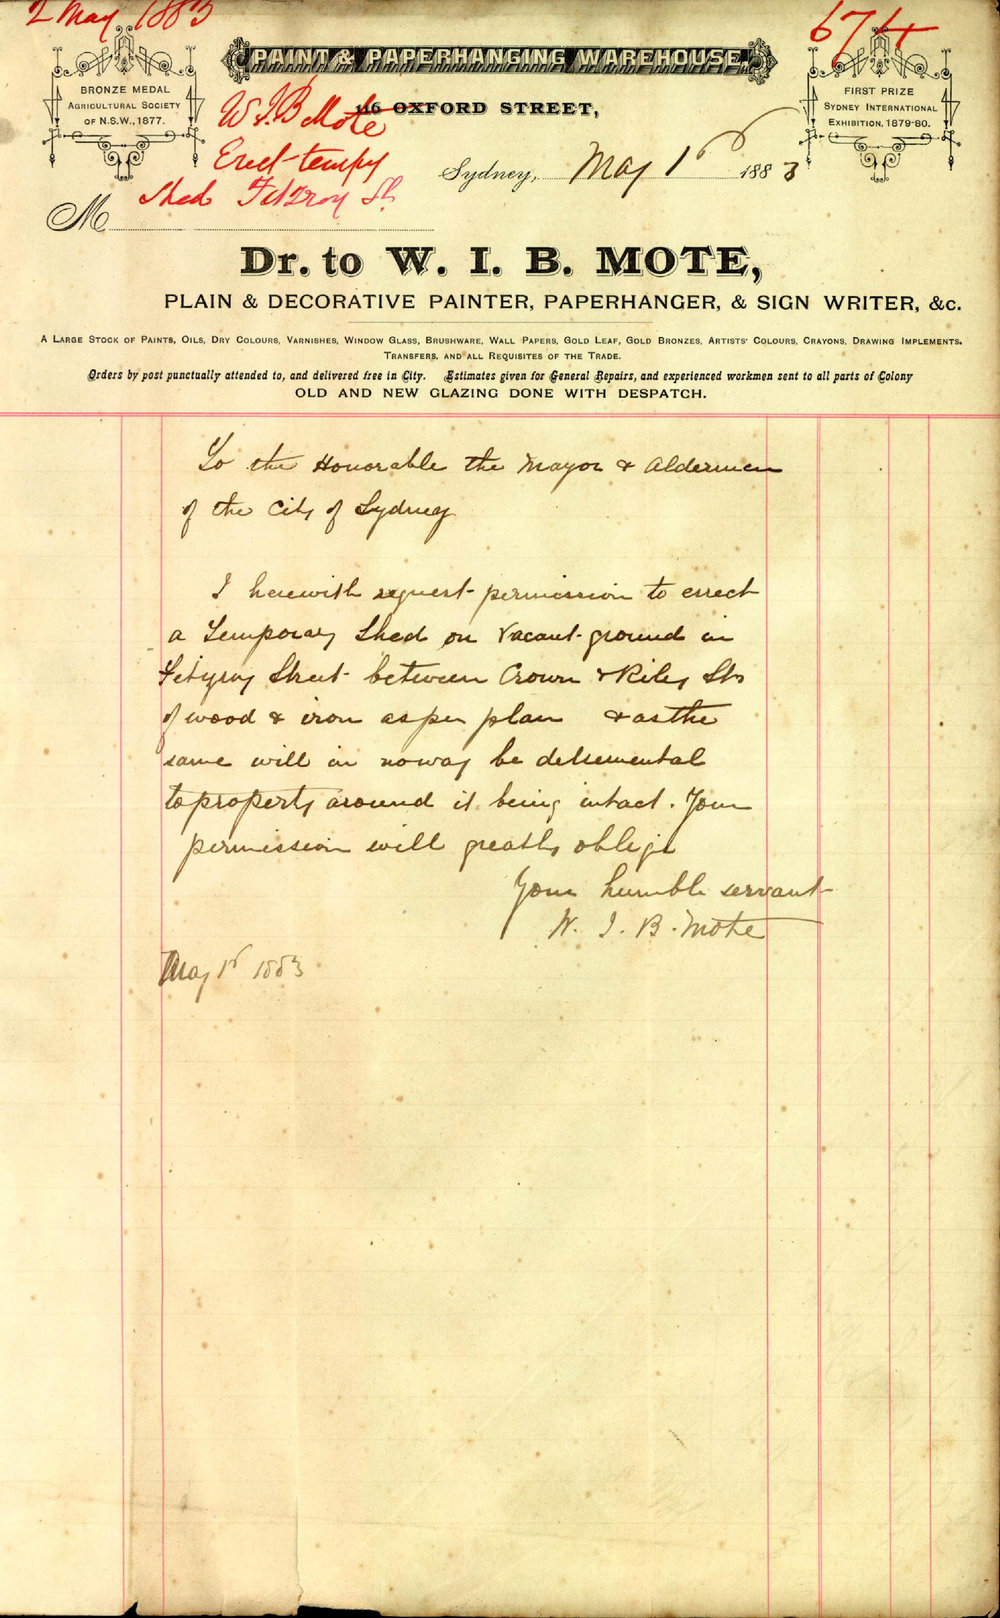 2 May 1883
674
PAINT & PAPERHANGING WAREHOUSE
BRONZE MEDAL
AGRICULTURAL SOCIETY
OF N.S.W., 1877.
FIRST PRIZE
SYDNEY INTERNATIONAL
EXHIBITION, 1879-80.
116 OXFORD STREET,
W I B Mote
Erect tempy
Shed Fitzroy St
Sydney, May 1st 1883
M
Dr. to W. I. B. MOTE,
PLAIN & DECORATIVE PAINTER, PAPERHANGER, & SIGN WRITER, &c.
A LARGE STOCK OF PAINTS, OILS, DRY COLOURS, VARNISHES, WINDOW GLASS, BRUSHWARE, WALL PAPERS, GOLD LEAF, GOLD BRONZES, ARTISTS' COLOURS, CRAYONS, DRAWING IMPLEMENTS.
TRANSFERS, AND ALL REQUISITES OF THE TRADE.
Orders by post punctually attended to, and delivered free in City. Estimates given for General Repairs, and experienced workmen sent to all parts of Colony
OLD AND NEW GLAZING DONE WITH DESPATCH.
To the Honorable the Mayor & Aldermen
of the City of Sydney
I herewith request permission to errect
a Temporary Shed on Vacant ground in
Fitzroy Street between Crown & Riley Sts
of wood & iron as per plan & as the
same will in noway be detremental
to property around it being intact. Your
permission will greatly oblige
Your humble servant
W. I. B. Mote
May 1st 1883